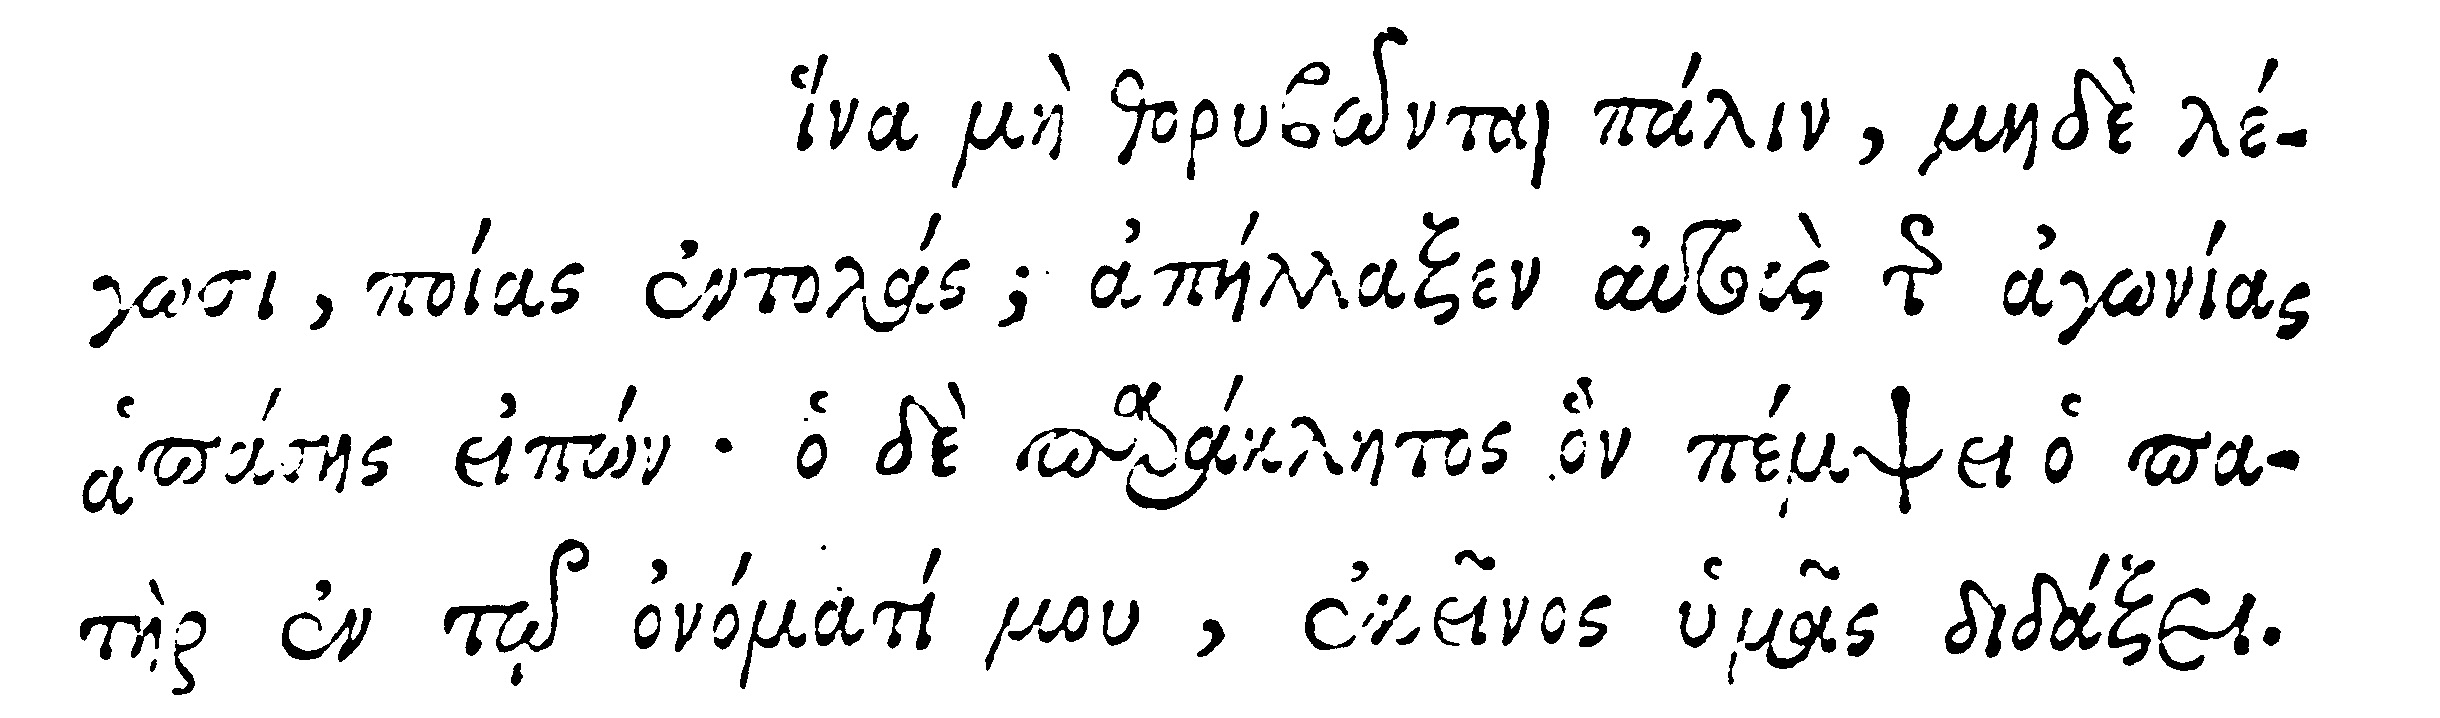 ἵνα μὴ θορυβῶνται πάλιν, μηδὲ λέ-
γωσι, ποίας ἐντολάς; ἀπήλλαξεν αὐτοὺς τῆς ἀγωνίας
ἁπάσης εἰπών· ὁ δὲ παράκλητος ὃν πέμψει ὁ πα-
τὴρ ἐν τῷ ὀνόματί μου, ἐκεῖνος ὑμᾶς διδάξει.